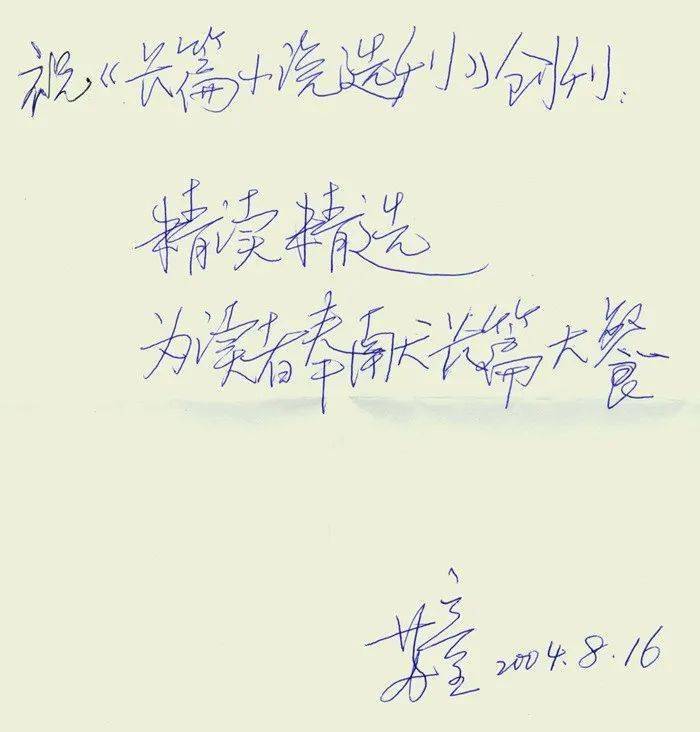 祝《长篇小说选刊》创刊:
精读精选
为读者奉献长篇大餐
苏童 2004.8.16